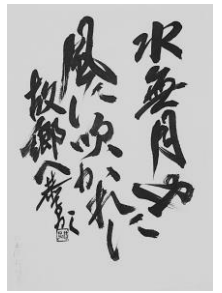 水無月や
風に吹かれに
故郷へ